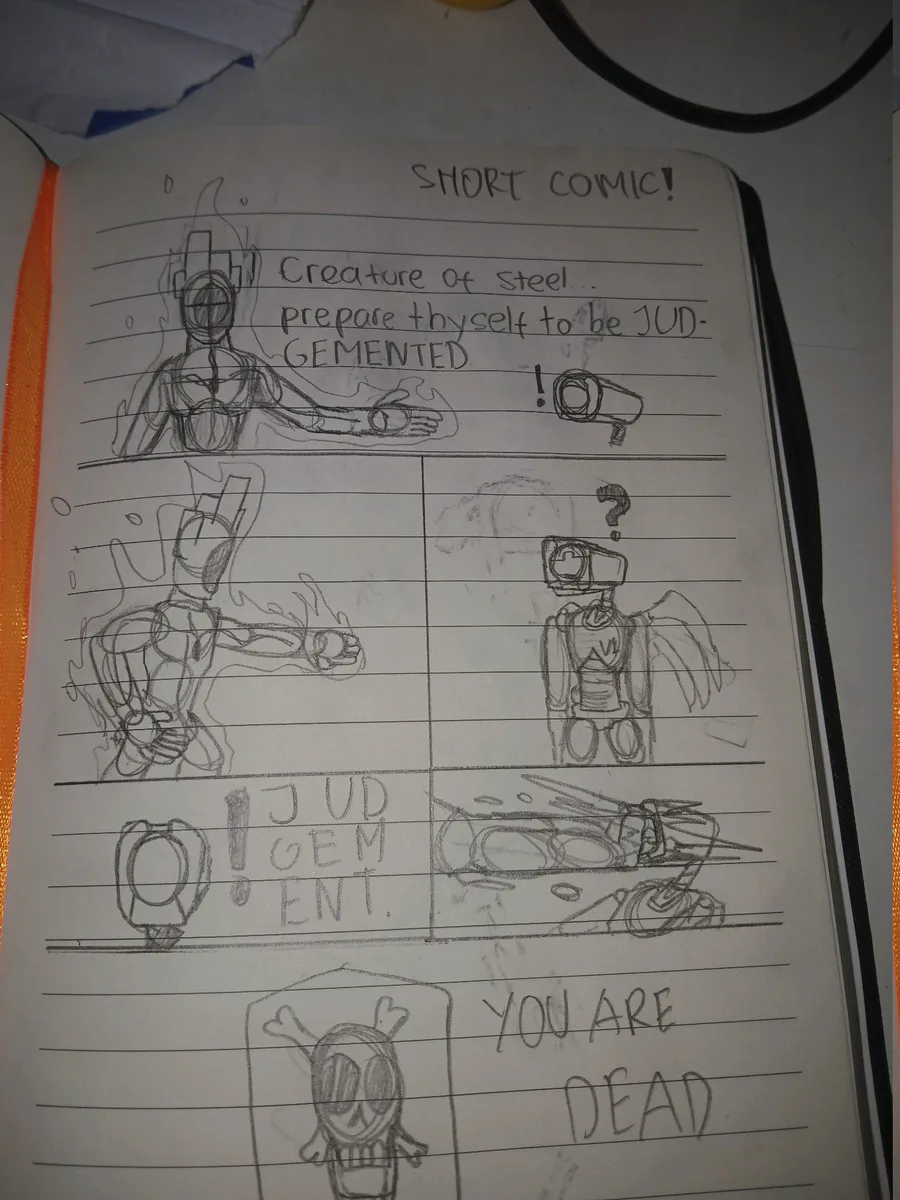 SHORT COMIC!
Creature of steel...
prepare thyself to be JUD-
GEMENTED
!
?
! JUD
GEM
ENT.
YOU ARE
DEAD